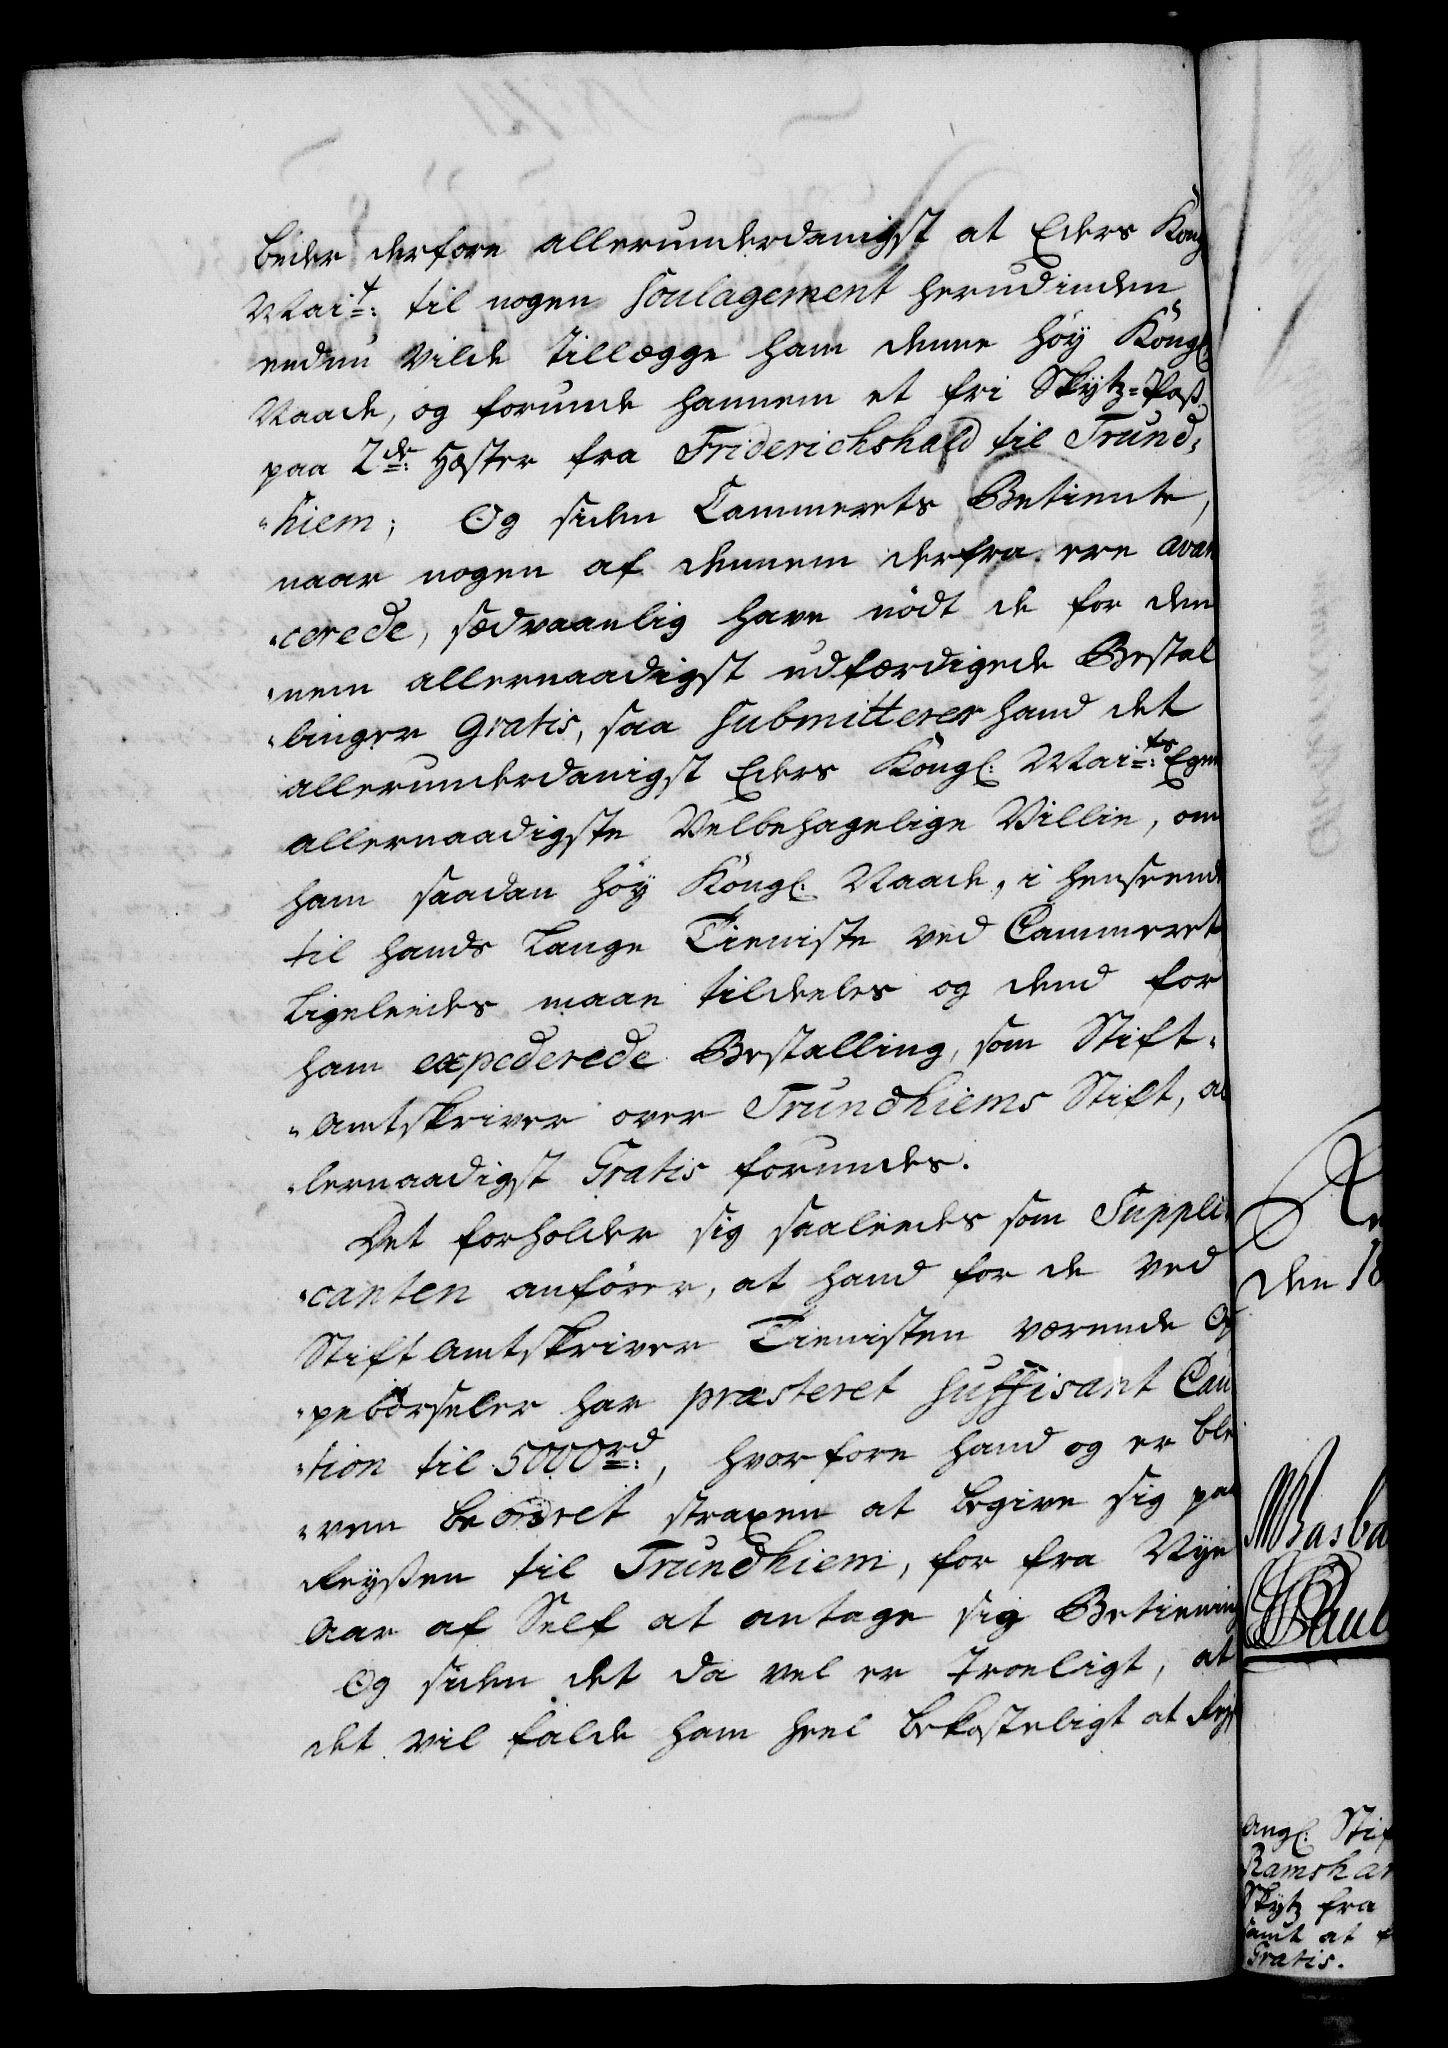 beder derfore allerunderdanigst at Eders Kong
Mai:t: til nogen Soulagement herudinden
endnu vilde tillægge ham denne höy Kongl:
Naade, og forunde hannem et fri Skytz-Pass
paa 2de: Hester fra Friderichshald til Trund,
"hiem; Og siden Cammerets Betiente,
naar nogen af dennem derfra ere avan
"cerede, sædvaanlig have nödt de for den
"nem allernaadigst udfærdigede Bestal
"linger Gratis, saa Submitterer hand det
allerunderdanigst Eders Kongl: Mai:ts: Egen
allernaadigste Velbehagelige Villie, om
ham saadan höy Kongl: Naade, i henseende
til hands lange Tieniste ved Cammeret
ligeleedes maae tildeeles og dend for
ham expederede Bestalling, som Stift-
"Amtskriver over Trundhiems Stift, al
"lernaadigst Gratis forundes.
Det forholder sig saaleedes som Suppli-
"canten anförer, at hand for de ved
Stift Amtskriver Tienisten værende Op
"pebörseler har præsteret suffisant Cau
"tion til 5000rd:, hvorfore hand og er ble
"ven beordret straxen at begive sig paa
Reyssen til Trundhiem, for fra Nye
Aar af Self at antage sig Betiening
Og siden det da vel er troeligt, at
det vil falde ham heel bekosteligt at Rejs
den 18
Angl: Stif
Ramshar
Skytz fra
samt at f
Gratis.